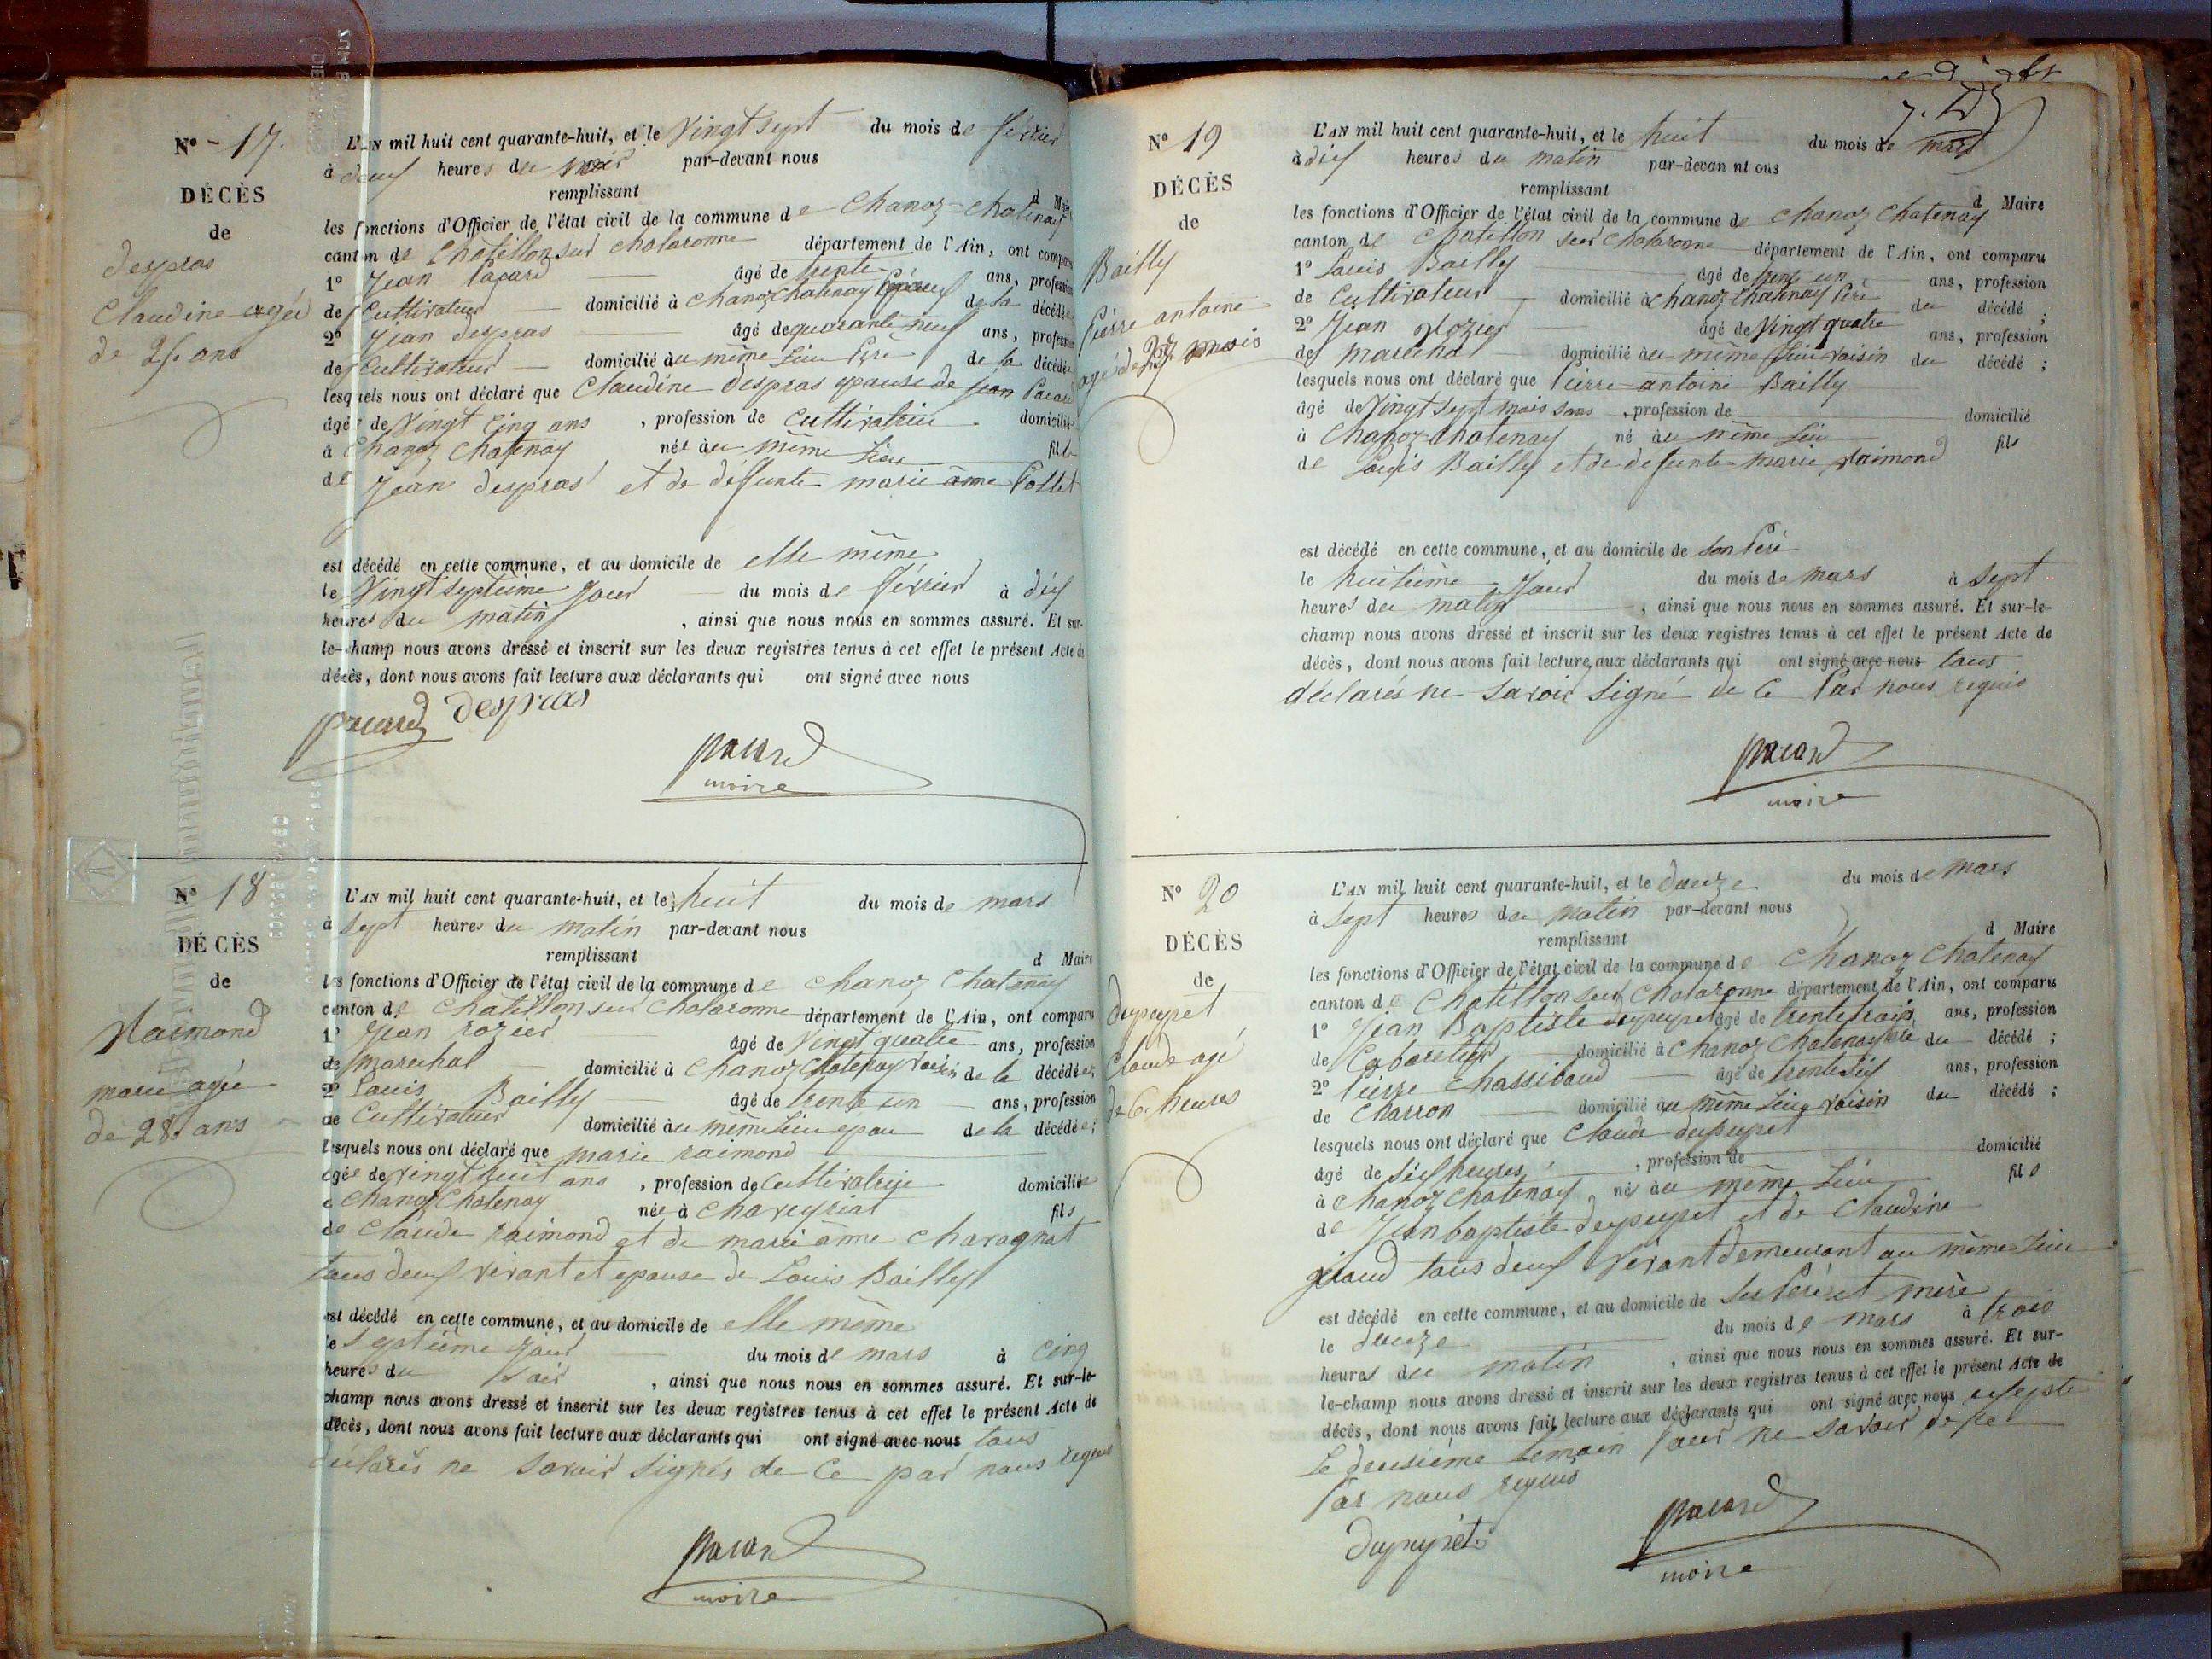 N° - 17.
DÉCÈS
de
despras
Claudine agée
de 25. ans
L'AN mil huit cent quarante-huit, et le Vingt sept du mois de février
à deux heures du soir par-devant nous
remplissant d Maire
les fonctions d'Officier de l'état civil de la commune de Chanoz-Chatenay
canton de Chatillon sur Chalaronne département de l'Ain, ont comparu
1° Jean Pacard âgé de trente ans, profession
de Cultivateur domicilié à Chanoz Chatenay Epoux de la décédée
2° Jean despras âgé de quarante neuf ans, profession
de Cultivateur domicilié à au même Lieu Père de la décédée
lesquels nous ont déclaré que Claudine despras epouse de Jean Pacard
âgée de Vingt Cinq ans , profession de Cultivatrice domiciliée
à Chanoz Chatenay née à au même Lieu fille
de Jean despras et de deffunte marie anne Pollet
est décédé en cette commune, et au domicile de elle même
le Vingt septieme Jour du mois de février à dix
heures du matin , ainsi que nous nous en sommes assuré. Et sur-
le-champ nous avons dressé et inscrit sur les deux registres tenus à cet effet le présent Acte de
décès, dont nous avons fait lecture aux déclarants qui ont signé avec nous
pacard despras
pacard
maire
N° 18
DÉCÈS
de
Raimond
marie agée
de 28. ans
L'AN mil huit cent quarante-huit, et le huit du mois de mars
à sept heures du matin par-devant nous
remplissant d Maire
les fonctions d'Officier de l'état civil de la commune de Chanoz Chatenay
canton de Chatillon sur Chalaronne département de l'Ain, ont comparu
1° Jean rozier âgé de Vingt quatre ans, profession
de marechal domicilié à Chanoz Chatenay Voisin de la décédée;
2° Louis Bailly âgé de trente un ans, profession
de Cultivateur domicilié à au même Lieu epou de la décédée;
lesquels nous ont déclaré que marie raimond
agée de vingt huit ans , profession de Cultivatrice domiciliée
a Chanoz Chatenay née à Chaveyriat fils
de Claude raimond et de marie anne Charagnat
tous deux vivant et epouse de Louis Bailly
est décédé en cette commune, et au domicile de elle même
le septieme Jour du mois de mars à Cinq
heures du soir , ainsi que nous nous en sommes assuré. Et sur-le-
champ nous avons dressé et inscrit sur les deux registres tenus à cet effet le présent Acte de
décès, dont nous avons fait lecture aux déclarants qui ont signé avec nous tous
déclarés ne savoir signés de Ce par nous requis
pacard
maire
N° 19
DÉCÈS
de
Bailly
Pierre antoine
agé de 27 mois
L'AN mil huit cent quarante-huit, et le huit du mois de mars
à dix heures du matin par-devan nt ous
remplissant d Maire
les fonctions d'Officier de l'état civil de la commune de Chanoz Chatenay
canton de Chatillon sur Chalaronne département de l'Ain, ont comparu
1° Louis Bailly âgé de trente un ans, profession
de Cultivateur domicilié à Chanoz Chatenay Père du décédé ;
2° Jean Rozier âgé de Vingt quatre ans, profession
de marechal domicilié à au même Lieu voisin du décédé ;
lesquels nous ont déclaré que Pierre antoine Bailly
âgé de Vingt sept mois sans , profession de domicilié
à Chanoz-Chatenay né à au même Lieu fils
de Louis Bailly et de defunte marie Raimond
est décédé en cette commune, et au domicile de son Père
le huitième Jour du mois de mars à sept
heures du matin , ainsi que nous nous en sommes assuré. Et sur-le-
champ nous avons dressé et inscrit sur les deux registres tenus à cet effet le présent Acte de
décès, dont nous avons fait lecture aux déclarants qui ont signé avec nous tous
déclarés ne savoir signé de Ce Par nous requis
pacard
maire
N° 20
DÉCÈS
de
dupupet
Claude agé
de 6. heures
L'AN mil huit cent quarante-huit, et le douze du mois de mars
à sept heures du matin par-devant nous
remplissant d Maire
les fonctions d'Officier de l'état civil de la commune de Chanoz Chatenay
canton de Chatillon sur Chalaronne département de l'Ain, ont comparu
1° Jean Baptiste âgé de trente trois ans, profession
de Cabaretier domicilié à Chanoz Chatenay Père du décédé ;
2° Pierre Chassibaud âgé de trente six ans, profession
de Charron domicilié à au même Lieu voisin du décédé ;
lesquels nous ont déclaré que Claude
âgé de six heures , profession de domicilié
à Chanoz Chatenay né à au même Lieu fils
de Jean baptiste et de Claudine
géraud tous deux Vivant demeurant au même Lieu
est décédé en cette commune, et au domicile de ses Père et mère
le douze du mois de mars à trois
heures du matin , ainsi que nous nous en sommes assuré. Et sur-
le-champ nous avons dressé et inscrit sur les deux registres tenus à cet effet le présent Acte de
décès, dont nous avons fait lecture aux déclarants qui ont signé avec nous
Le deuxième temoin Pour ne savoir de Ce
Par nous requis
pacard
maire